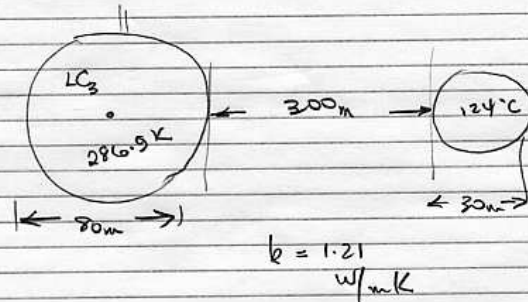 LC₃
286.9 K
300m
124°C
80m
30m
k = 1.21
W/mK